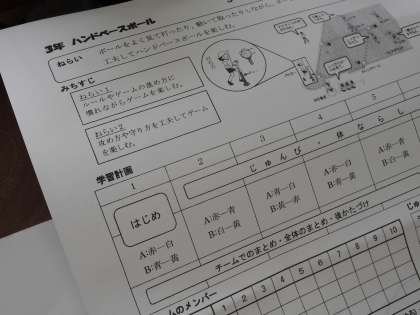 3年 ハンドベースボール
ねらい
ボールをよく見て打ったり、動いて取ったりしながら、ボー
工夫してハンドベースボールを楽しむ。
みちすじ
ねらい1
ルールやゲームの進め方に
慣れながらゲームを楽しむ。
ねらい2
攻め方や守り方を工夫してゲーム
を楽しむ。
学習計画
1 2 3 4 5
じゅんび・体ならし
はじめ
A:赤―白
B:青―黄
A:赤―青
B:白―黄
A:青―白
B:黄―赤
A:赤―白
B:青―黄
A:赤―青
B:白―黄
チームでのまとめ・全体のまとめ・後かたづけ
ムのメンバー
1 2 3 4 5 6 7 8 9 10
じゅ